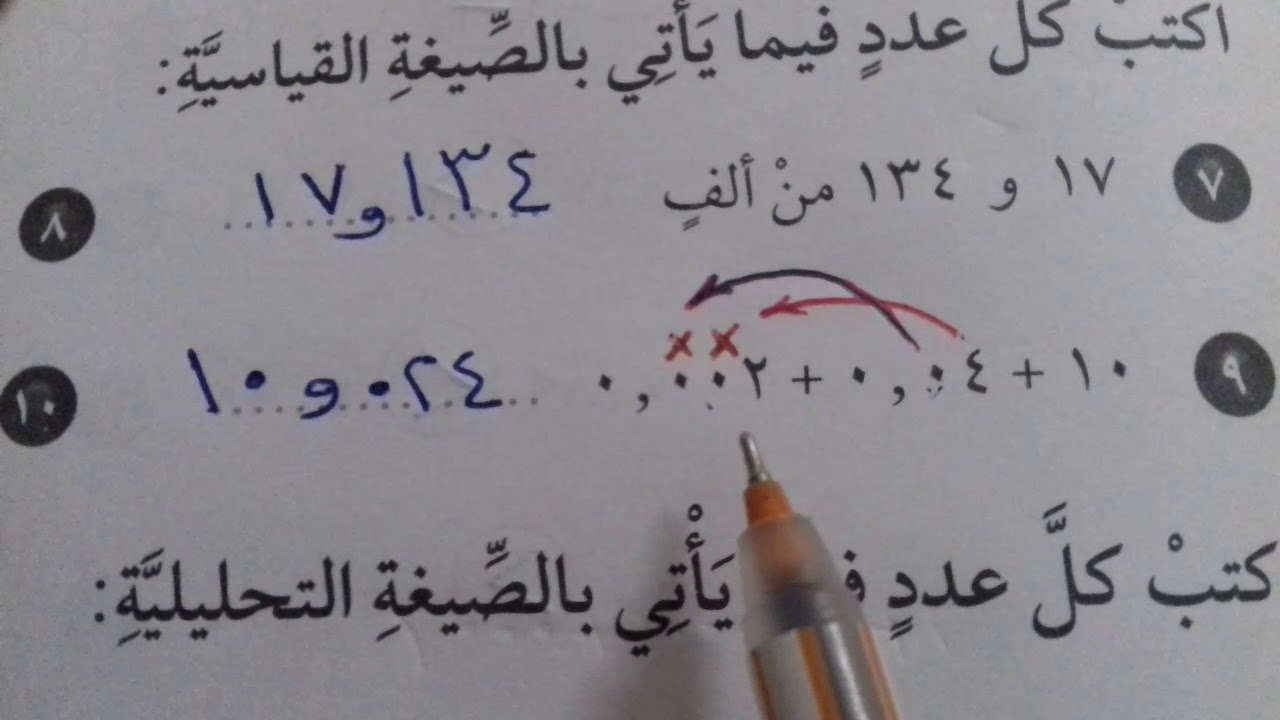 اكتبْ كلَّ عددٍ فيما يَأتِي بالصِّيغةِ القياسيَّةِ:
٧ ١٧ و ١٣٤ منْ ألفٍ ١٧و١٣٤ ٨
٩ ١٠ + ٠,٠٤ + ٠,٠٠٢ ١٠و٠٢٤ ١٠
كتبْ كلَّ عددٍ يَأْتِي بالصِّيغةِ التحليليَّةِ: